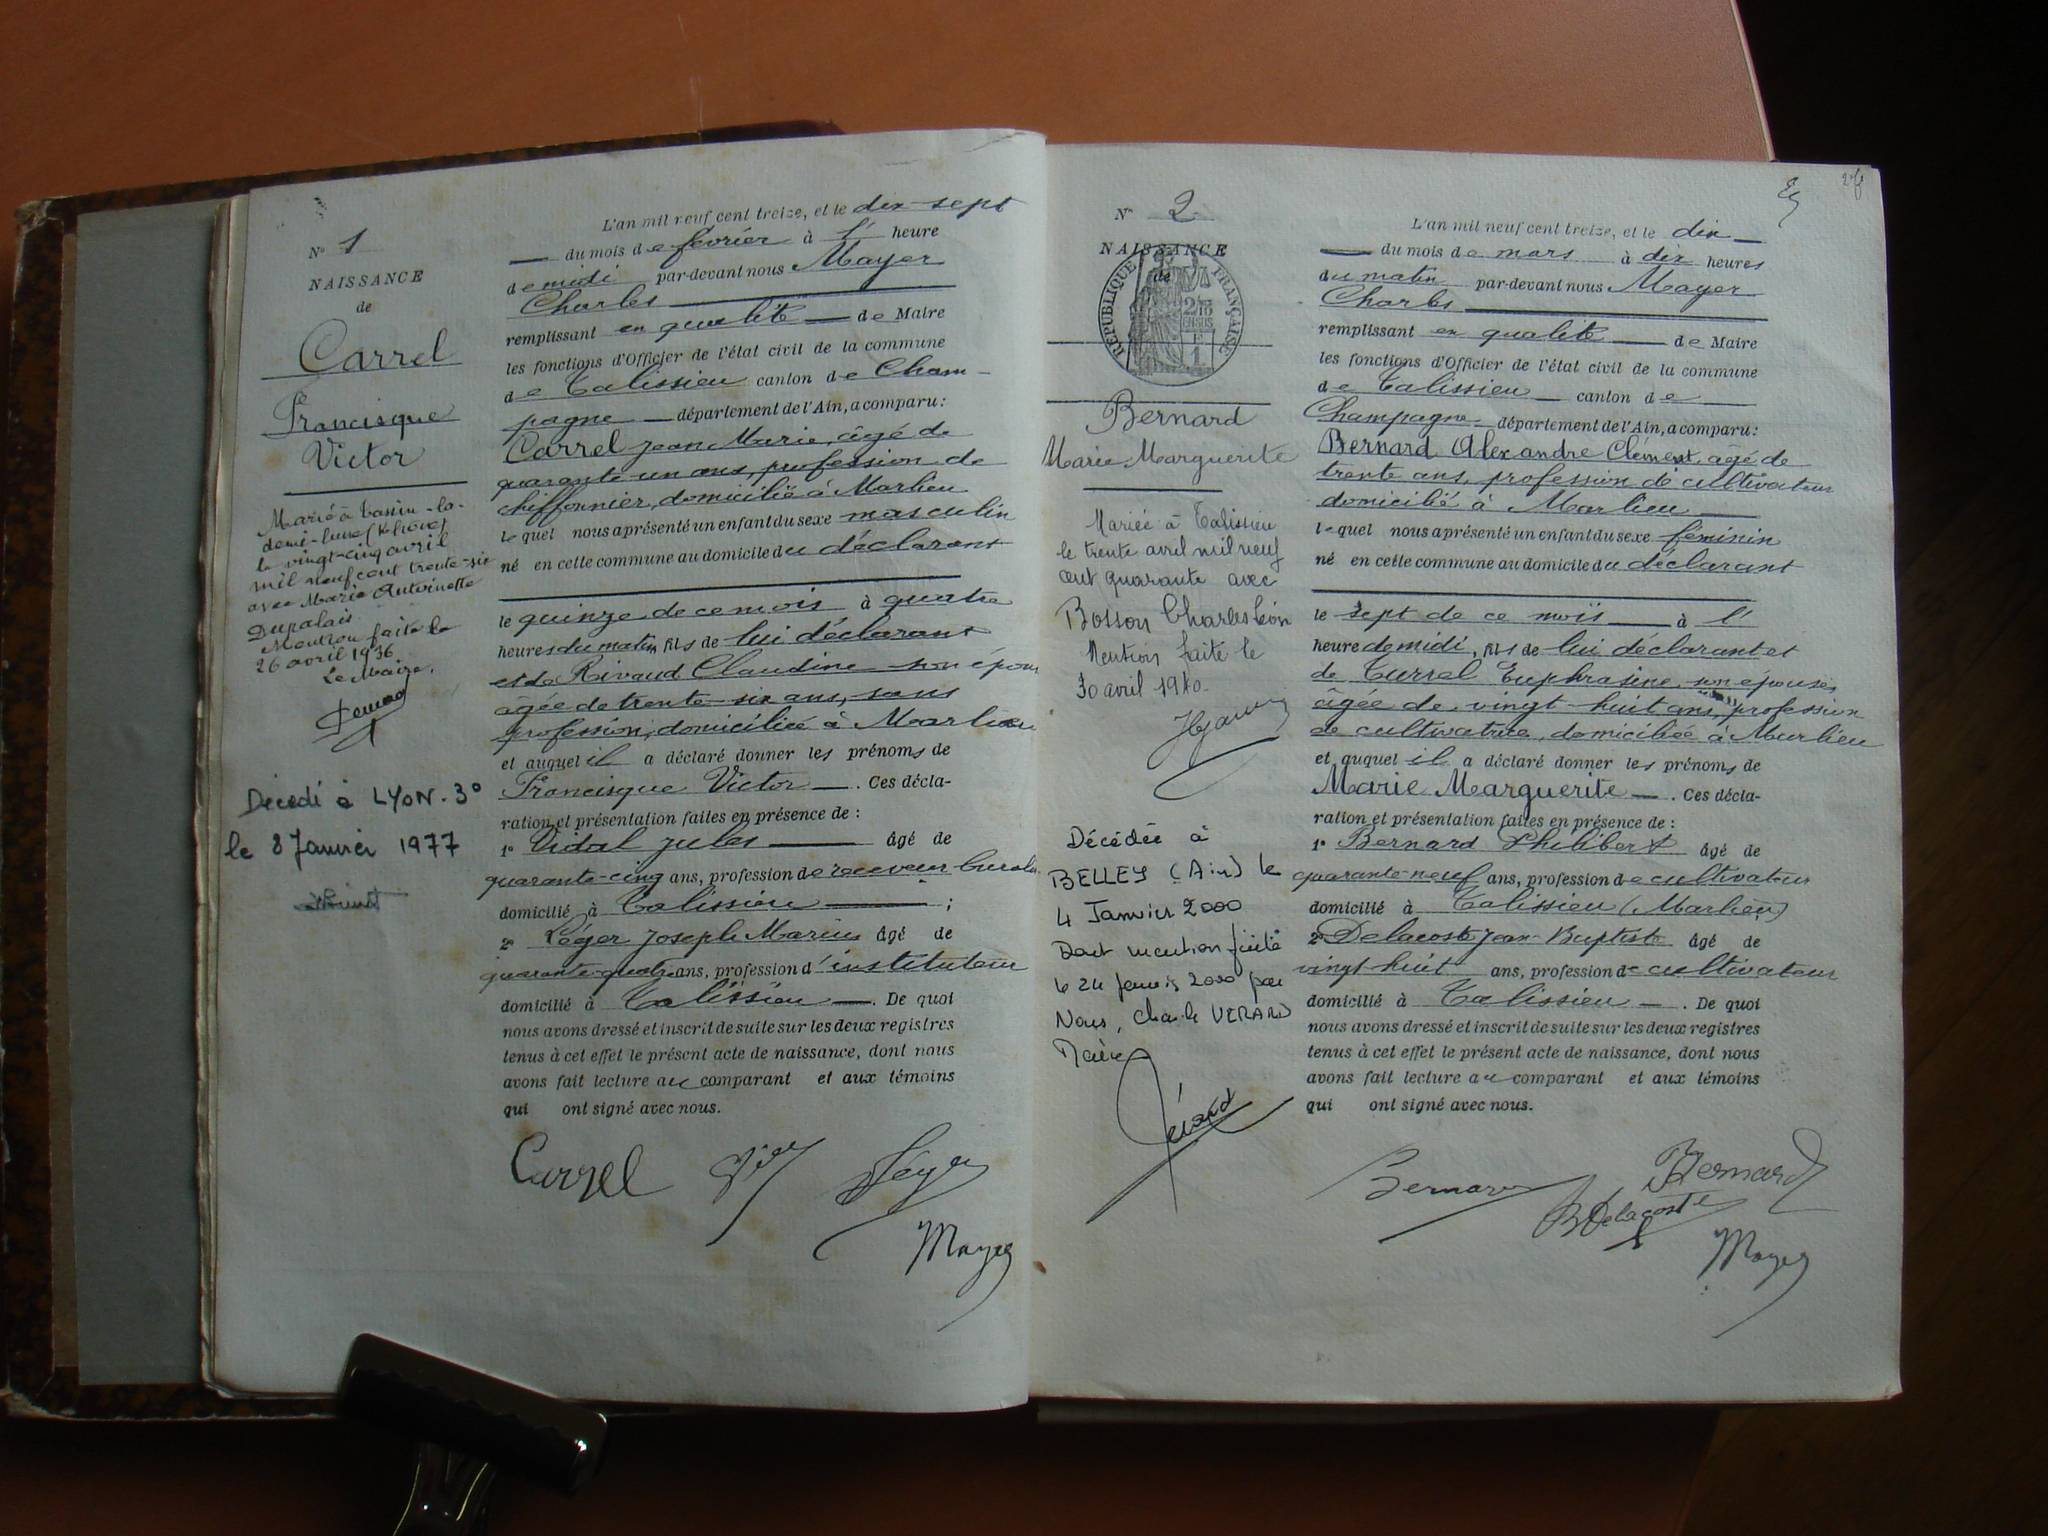 N° 1
NAISSANCE
de
Carrel
Francisque
Victor
Marié à Tassin-la-
demi-lune (Rhône)
le vingt-cinq avril
mil neuf cent trente-six
avec Marie Antoinette
Dupalais
Mention faite le
26 avril 1936
Le Maire,
Décédé à LYON-3°
le 8 Janvier 1977
L'an mil neuf cent treize, et le dix-sept
du mois de février à l' heure
de midi par-devant nous Mayer
Charles
remplissant en qualité de Maire
les fonctions d'Officier de l'état civil de la commune
de Talissieu canton de Cham-
pagne département de l'Ain, a comparu :
Carrel Jean Marie, âgé de
quarante-un ans, profession de
chiffonnier, domicilié à Marlieu
lequel nous a présenté un enfant du sexe masculin
né en cette commune au domicile du déclarant
le quinze de ce mois à quatre
heures du matin, fils de lui déclarant
et de Rivaud Claudine son épouse
âgée de trente-six ans, sans
profession, domiciliée à Marlieu
et auquel il a déclaré donner les prénoms de
Francisque Victor . Ces décla-
ration et présentation faites en présence de :
1° Vidal Jules âgé de
quarante-cinq ans, profession de receveur buraliste
domicilié à Talissieu ;
2° Léger Joseph Marius âgé de
quarante-quatre ans, profession d'instituteur
domicilié à Talissieu . De quoi
nous avons dressé et inscrit de suite sur les deux registres
tenus à cet effet le présent acte de naissance, dont nous
avons fait lecture au comparant et aux témoins
qui ont signé avec nous.
Carrel Léger
Mayer
26
N° 2
NAISSANCE
de
RÉPUBLIQUE FRANÇAISE
Bernard
Marie Marguerite
Mariée à Talissieu
le trente avril mil neuf
cent quarante avec
Bosson Charles Léon
Mention faite le
30 avril 1940
Décédée à
BELLEY (Ain) le
4 Janvier 2000
Dont mention faite
le 24 Janvier 2000 par
Nous, Charles VERARD
Maire
Vérard
L'an mil neuf cent treize, et le dix
du mois de mars à dix heures
du matin par-devant nous Mayer
Charles
remplissant en qualité de Maire
les fonctions d'Officier de l'état civil de la commune
de Talissieu canton de
Champagne département de l'Ain, a comparu :
Bernard Alexandre Clément, âgé de
trente ans, profession de cultivateur
domicilié à Marlieu
lequel nous a présenté un enfant du sexe féminin
né en cette commune au domicile du déclarant
le sept de ce mois à l'
heure de midi, fils de lui déclarant et
de Turrel Euphrasine son épouse,
âgée de vingt-huit ans, profession
de cultivatrice, domiciliée à Marlieu
et auquel il a déclaré donner les prénoms de
Marie Marguerite . Ces décla-
ration et présentation faites en présence de :
1° Bernard Philibert âgé de
quarante-neuf ans, profession de cultivateur
domicilié à Talissieu (Marlieu)
2° Delacoste Jean-Baptiste âgé de
vingt-huit ans, profession de cultivateur
domicilié à Talissieu . De quoi
nous avons dressé et inscrit de suite sur les deux registres
tenus à cet effet le présent acte de naissance, dont nous
avons fait lecture au comparant et aux témoins
qui ont signé avec nous.
Bernard Bernard
B Delacoste
Mayer